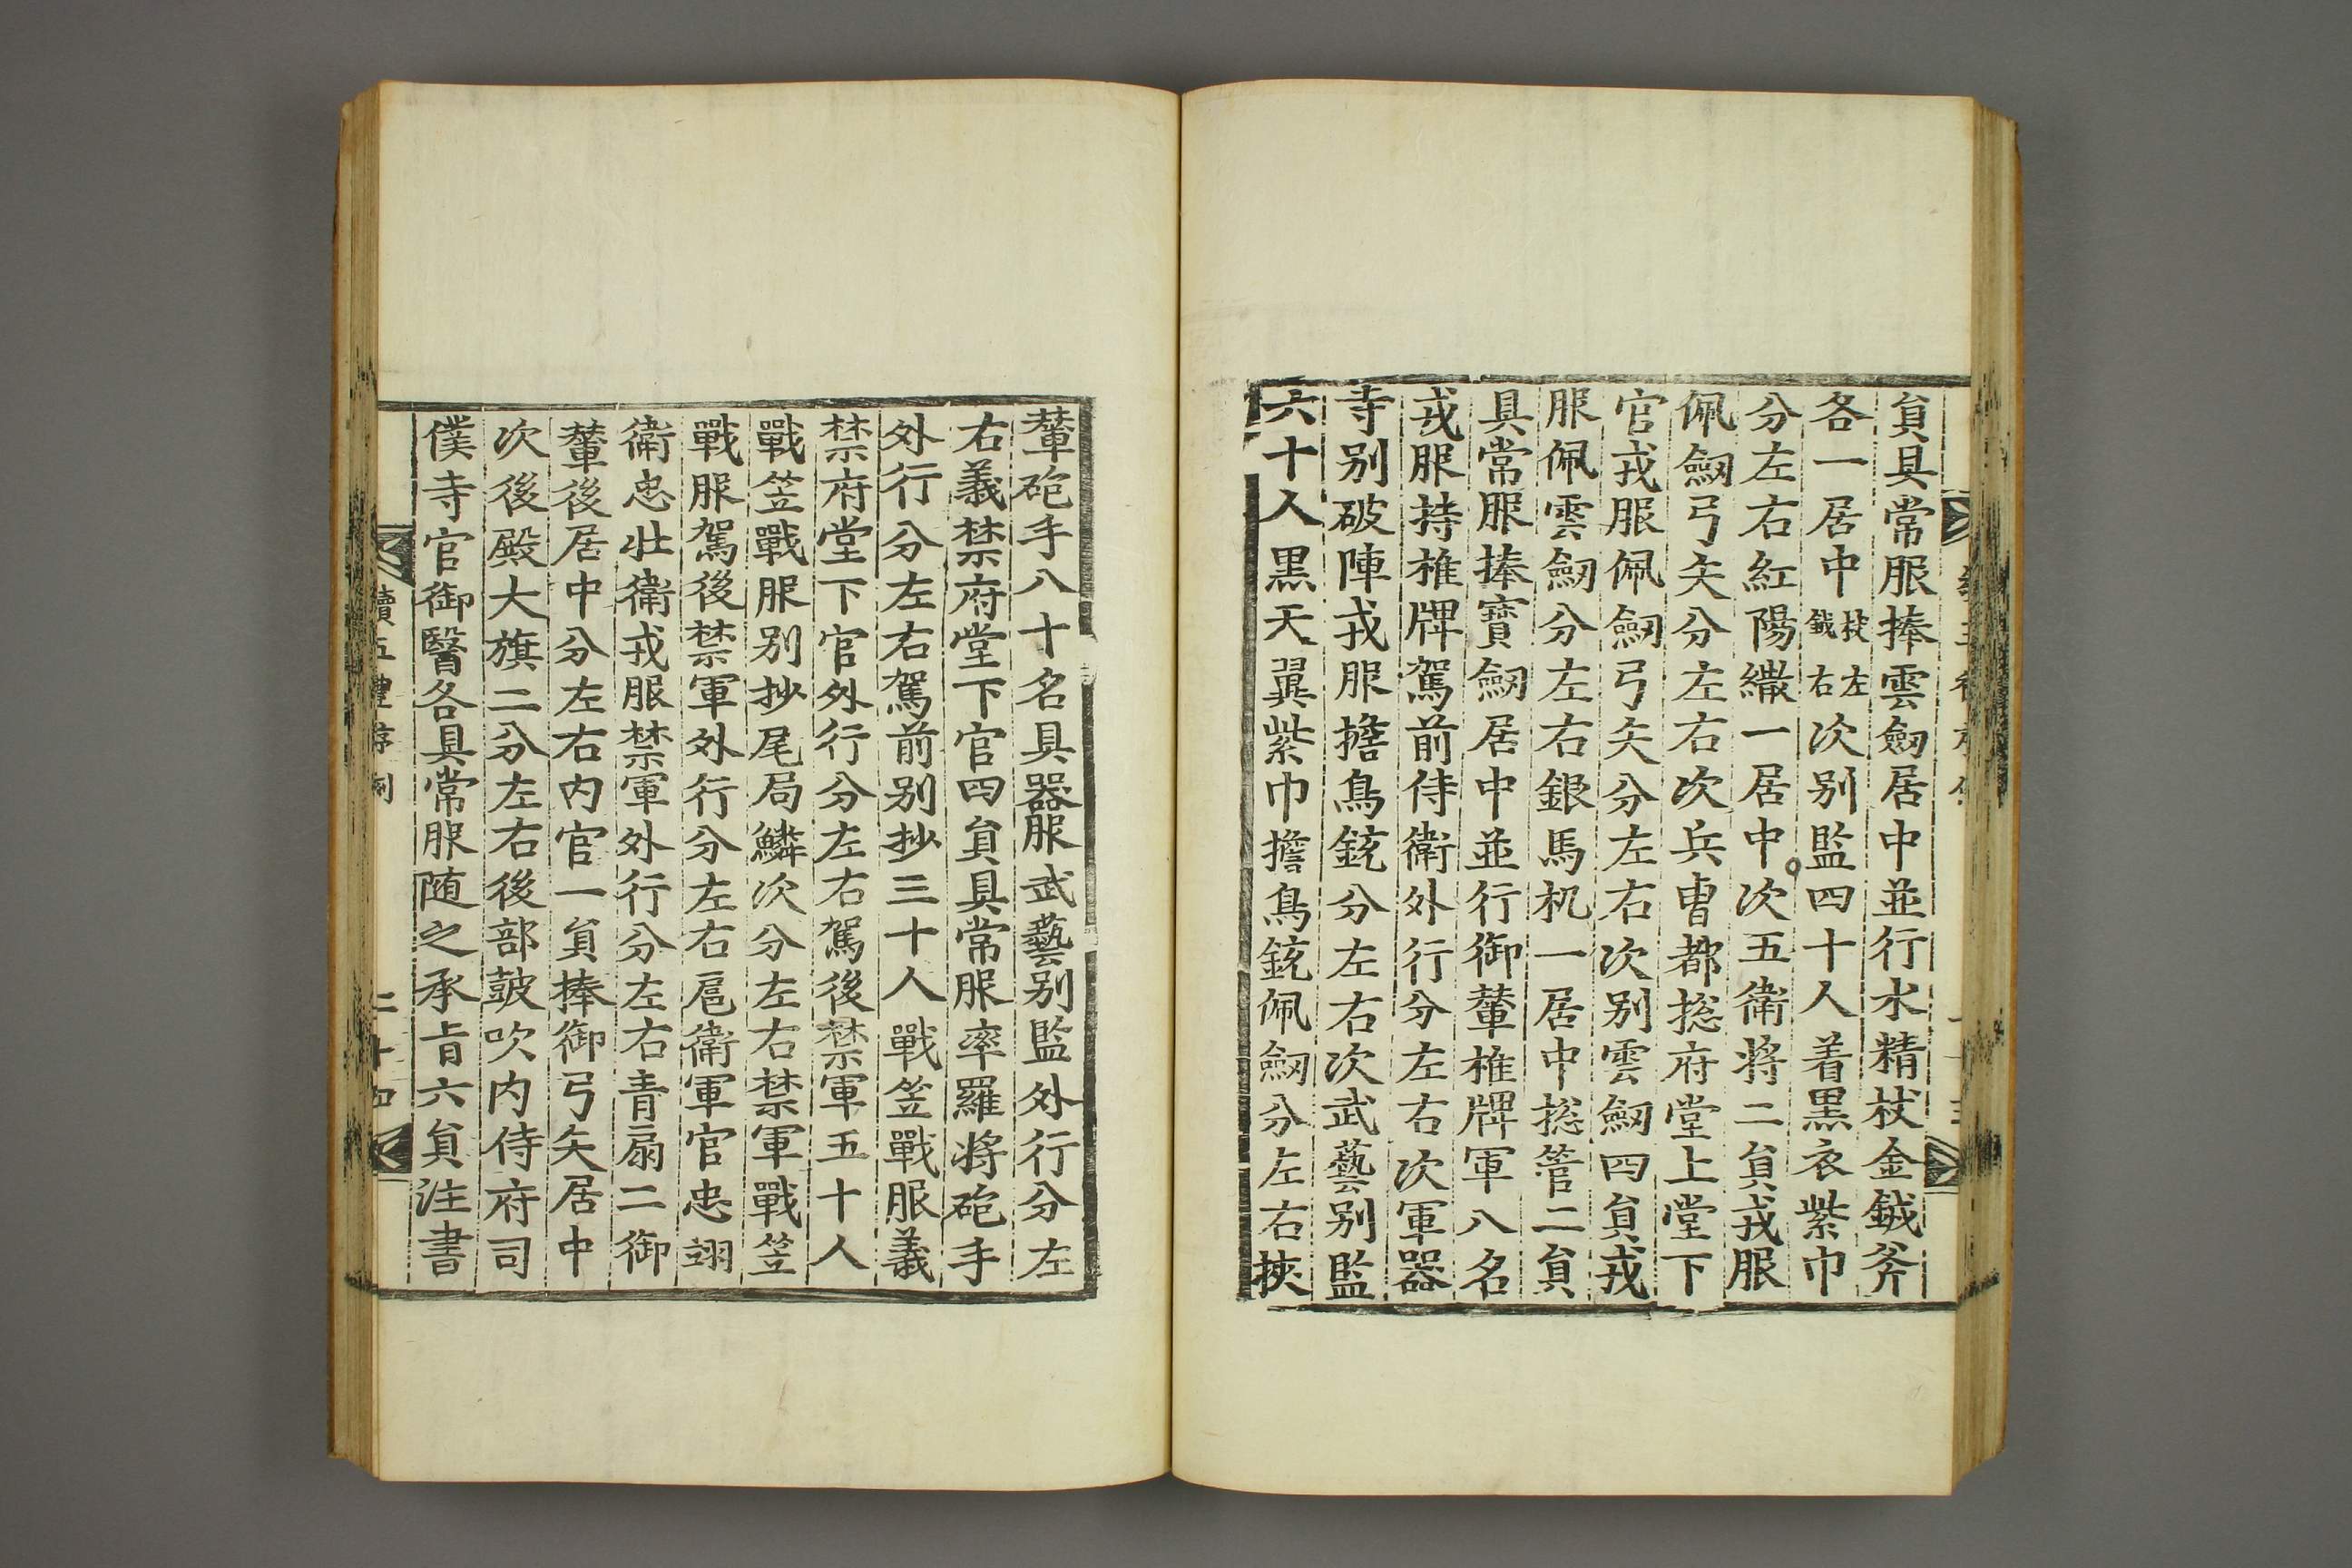 負具常服捧雲劒居中並行水精杖金鉞斧
各一居中杖左鉞右次别監四十人着黒衣紫巾
分左右紅陽繖一居中次五衛將二負戎服
佩劒弓矢分左右次兵曺都捴府堂上堂下
官戎服佩劒弓矢分左右次别雲劒四負戎
服佩雲劒分左右銀馬机一居中捴管二負
具常服捧寶劒居中並行御輦椎牌軍八名
戎服持椎牌駕前侍衛外行分左右次軍器
寺别破陣戎服擔鳥銃分左右次武藝别監
六十人黒天翼紫巾擔鳥銃佩劒分左右挾
輦砲手八十名具器服武藝别監外行分左
右義禁府堂下官四負具常服率羅將砲手
外行分左右駕前别抄三十人戰笠戰服義
禁府堂下官外行分左右駕後禁軍五十人
戰笠戰服别抄尾局鱗次分左右禁軍戰笠
戰服駕後禁軍外行分左右扈衛軍官忠翊
衛忠壯衛戎服禁軍外行分左右青扇二御
輦後居中分左右内官一負捧御弓矢居中
次後殿大旗二分左右後部鼓吹内侍府司
僕寺官御醫各具常服随之承㫖六負注書
續五禮序例
二十四